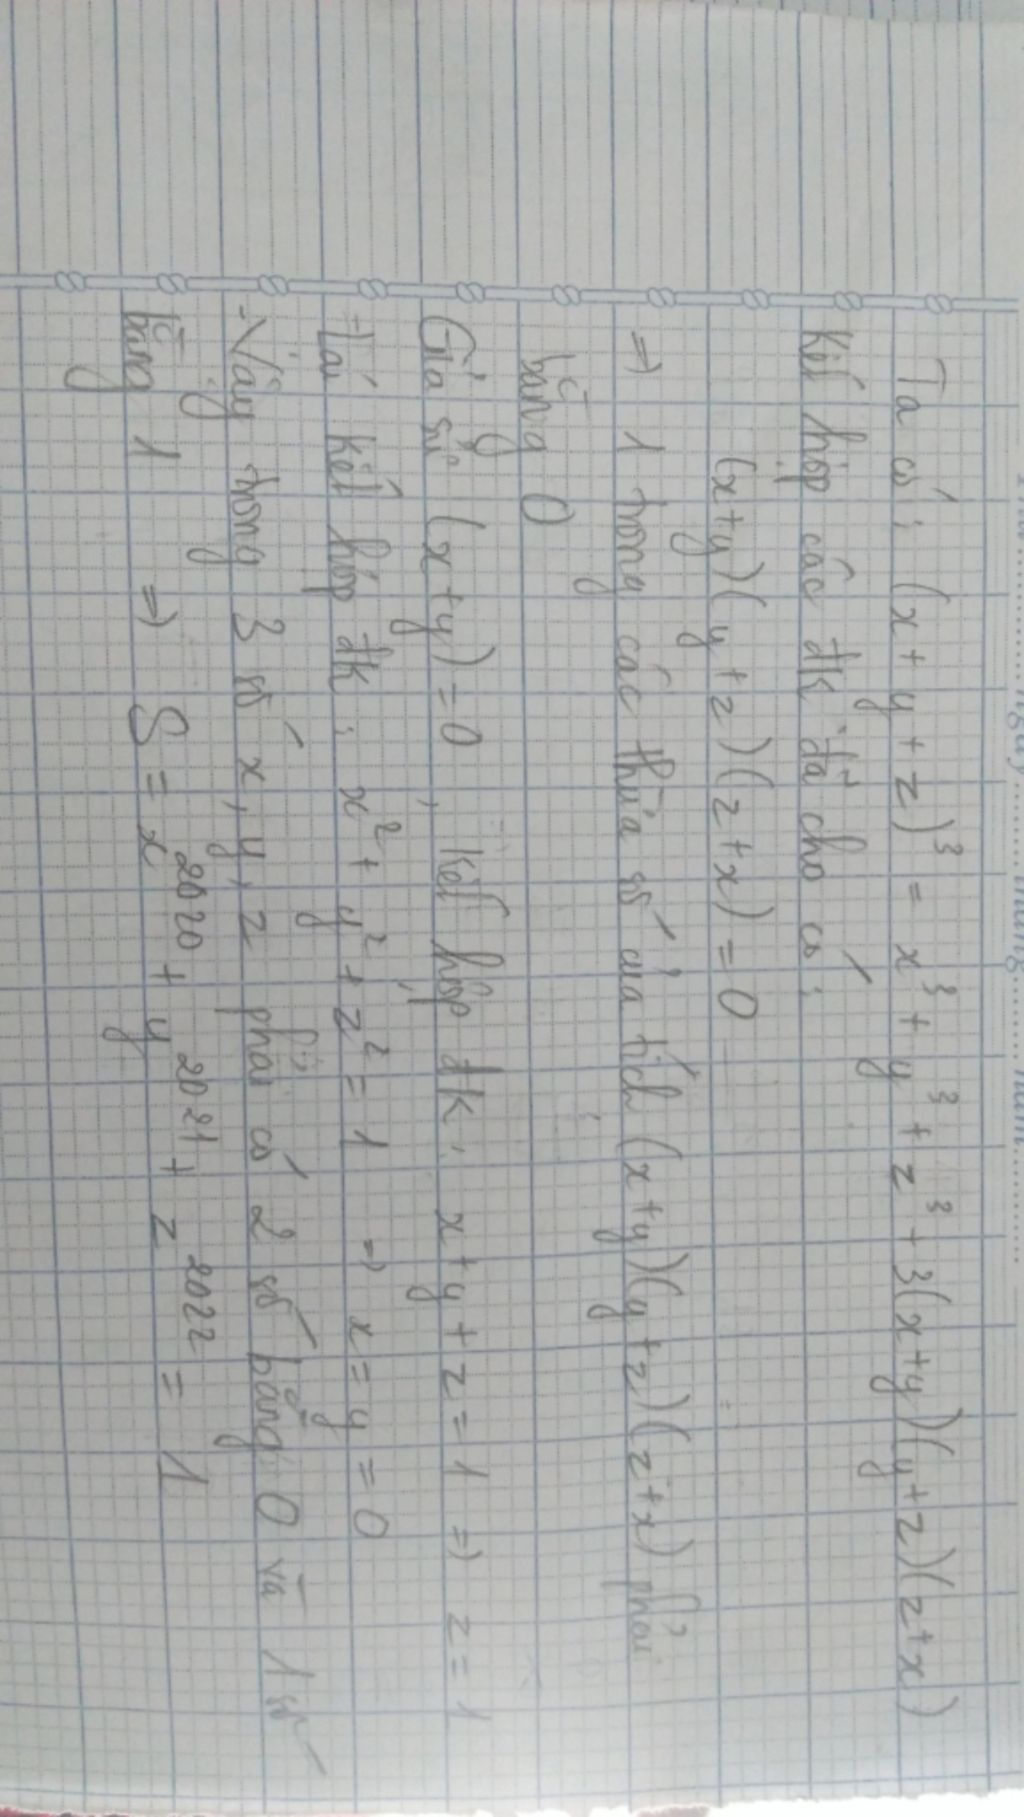 Thứ.......ngày.......tháng.......năm.......
Ta có: (x+y+z)³ = x³+y³+z³+3(x+y)(y+z)(z+x)
Kết hợp các đk đã cho có:
(x+y)(y+z)(z+x)=0
=> 1 trong các thừa số của tích (x+y)(y+z)(z+x) phải
bằng 0
Giả sử (x+y)=0, kết hợp đk: x+y+z=1 => z=1
Lại kết hợp đk: x²+y²+z²=1 => x=y=0
-Vậy trong 3 số x, y, z phải có 2 số bằng 0 và 1 số
bằng 1 => S = x²⁰²⁰ + y²⁰²¹ + z²⁰²² = 1